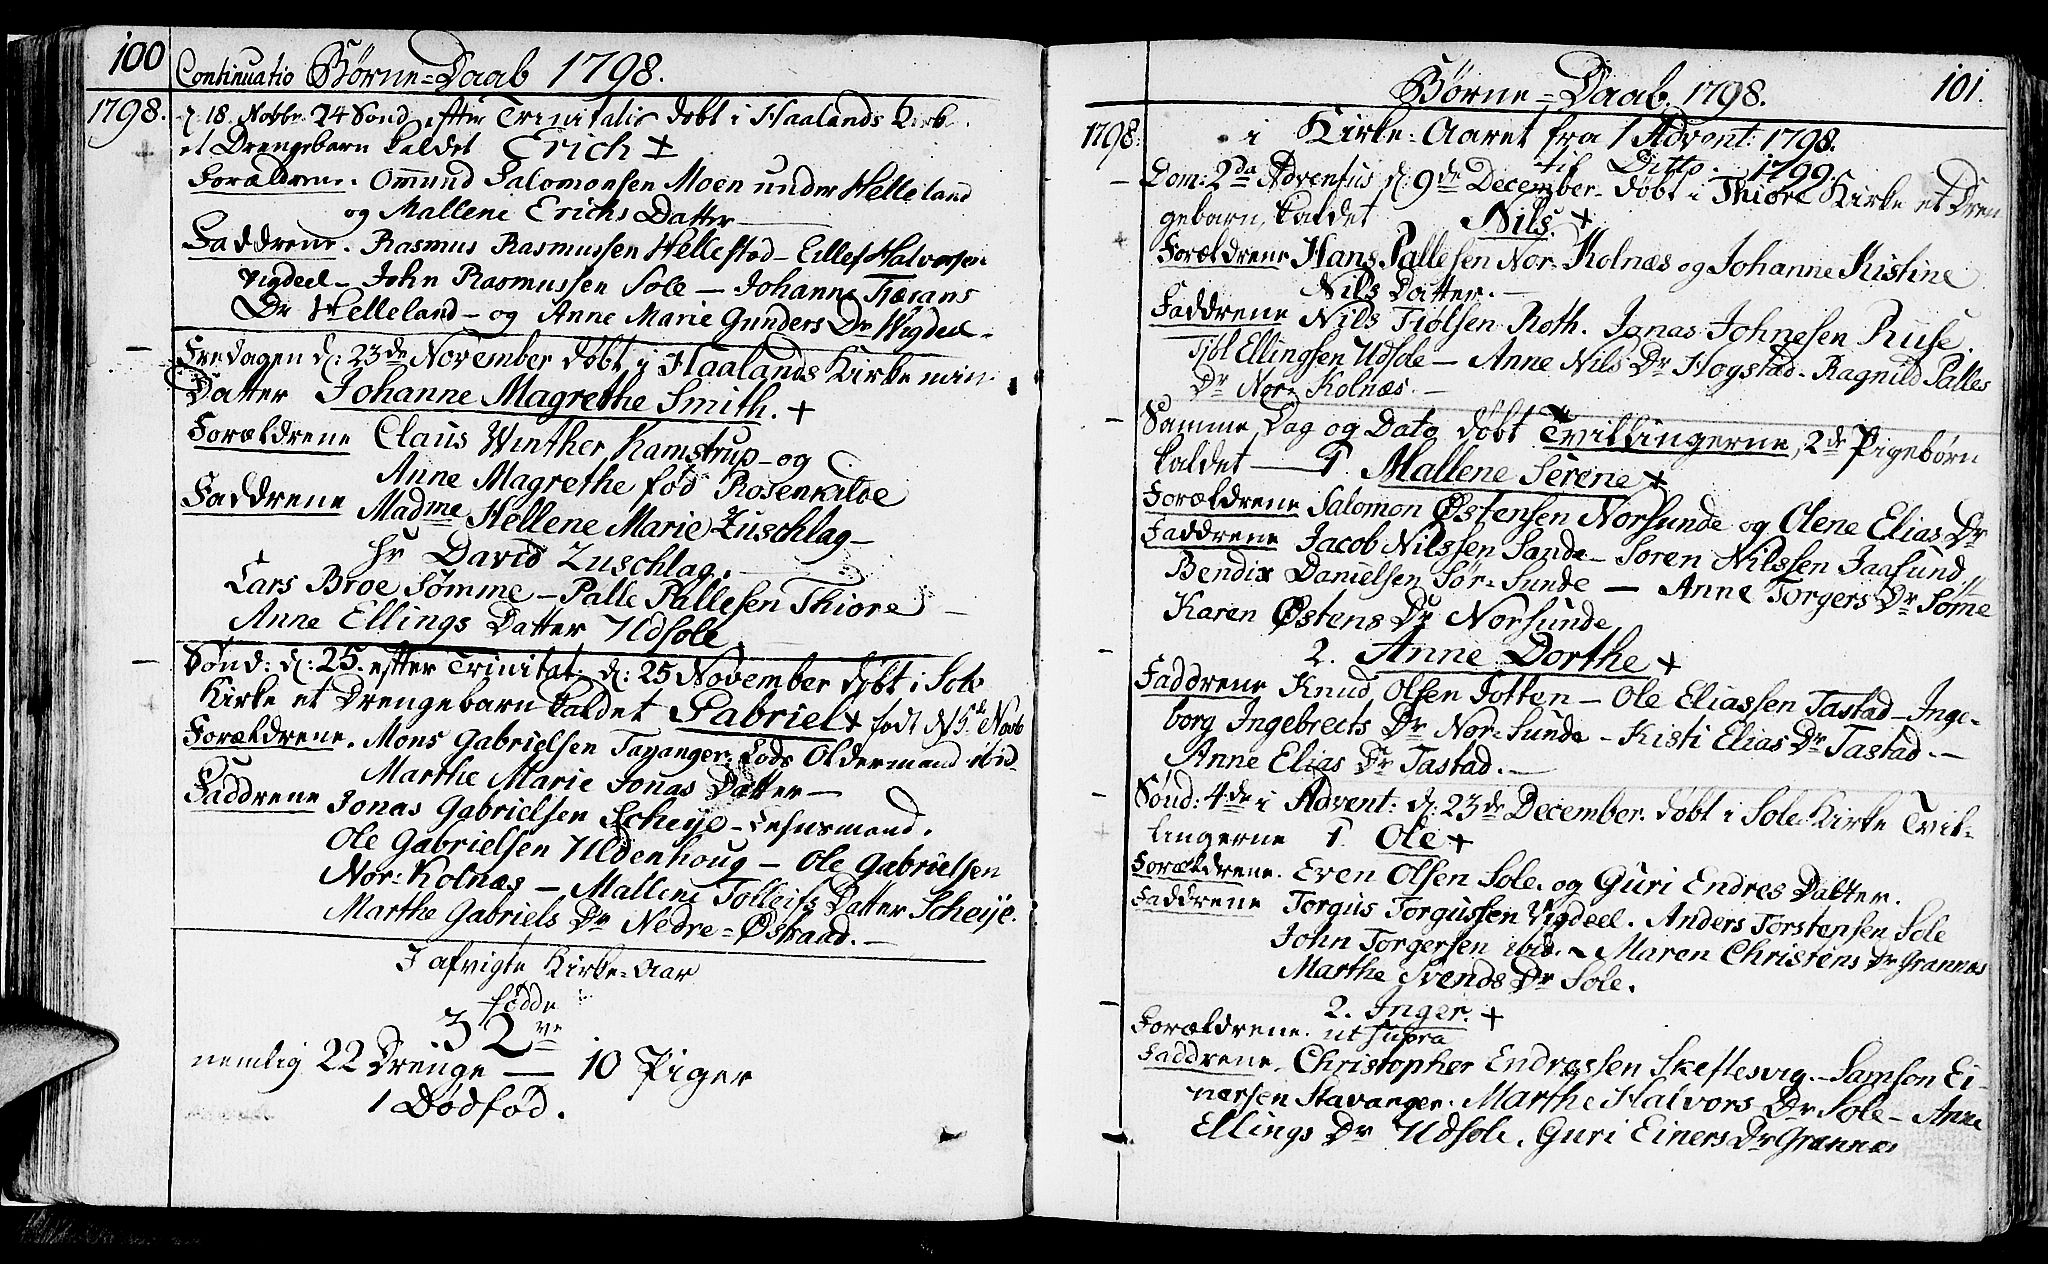 100
Continuatio Børne-Daab 1798.
1798.
d. 18. Novbr. 24 Sønd. efter Trinitatis døbt i Haalands Kirke
et Drengebarn kaldet Erich +
Forældrene. Ommund Salomonsen Moen under Helleland
og Mallene Erichs Datter —
Faddrene. Rasmus Rasmussen Hellestad — Eillef Halvorsen
Vigdeel — John Rasmussen Sole — Johanne Tjærans
Dr Helleland — og Anne Marie Gunders Dr Wigdeel —
Fredagen d: 23de November døbt i Haalands Kirke min
Datter Johanne Magrethe Smith. +
Forældrene Claus Winther Kamstrup — og
Anne Magrethe fød Rosenkilde
Faddrene Madme Hellene Marie Zuschlag —
Hr David Zuschlag. —
Lars Broe Sømme — Palle Pallesen Thiore —
Anne Ellings Datter Udsole
Sønd: d: 25. efter Trinitat: d: 25 November døbt i Sole
Kirke et Drengebarn kaldet Gabriel + født d. 5te Novb
Forældrene. Mons Gabrielsen Tananger, Lods Oldermand ibid —
Marthe Marie Jonas Datter —
Faddrene Jonas Gabrielsen Scheije — Lensmand.
Ole Gabrielsen Uldenhoug — Ole Gabrielsen
Nor-Kolnæs — Mallene Tolleifs Datter Scheije.
Marthe Gabriels Dr Nedre-Østraad. —
I afvigte Kirke-Aar
fødde
32ve
nemlig 22 Drenge — 10 Piger
1 Dødfød.
Børne-Daab 1798.
101.
1798.
i Kirke-Aaret fra 1 Advent: 1798.
til Ditto. 1799.
Dom: 2da Adventus d: 9de December døbt i Thiore Kirke et Dren
gebarn, kaldet Nils. +
Forældrene Hans Pallesen Nor-Kolnæs og Johanne Kistine
Nils Datter. —
Faddrene Nils Tiølsen Roth. Jonas Johnesen Ruse.
Tjøl Ellingsen Udsole — Anne Nils Dr Hogstad. Ragnild Palles
Dr Nor-Kolnæs. —
Samme Dag og Dato døbt Tvillingerne, 2de Pigebørn
kaldet — 1. Mallene Serene +
Forældrene Salomon Østensen Norsunde og Olene Elias Dr
Faddrene Jacob Nilssen Sande — Soren Nilssen Jaasund.
Bendix Danielsen Sør-Sunde — Anne Torgers Dr Sømme
Karen Østens Dr Norsunde
2. Anne Dorthe +
Faddrene Knud Olsen Jotten — Ole Eliassen Tastad — Inge-
borg Ingebrects Dr Nor-Sunde — Kisti Elias Dr Tastad. —
Anne Elias Dr Tastad. —
Sønd: 4de i Advent: d: 23de December døbt i Sole Kirke Tvil-
lingerne 1. Ole +
Forældrene. Even Olsen Sole. og Guri Endres Datter.
Faddrene Torgus Torgussen Vigdeel. Anders Torstensen Sole
John Torgersen ibid. — Maren Christens Dr Grannes
Marthe Svends Dr Sole.
2. Inger. +
Forældrene. ut supra
Faddrene. Christopher Endresen Skeflesvig. — Samson Ei-
nersen Stavanger. Marthe Halvors Dr Sole — Anne
Ellings Dr Udsole. Guri Einers Dr Grannes